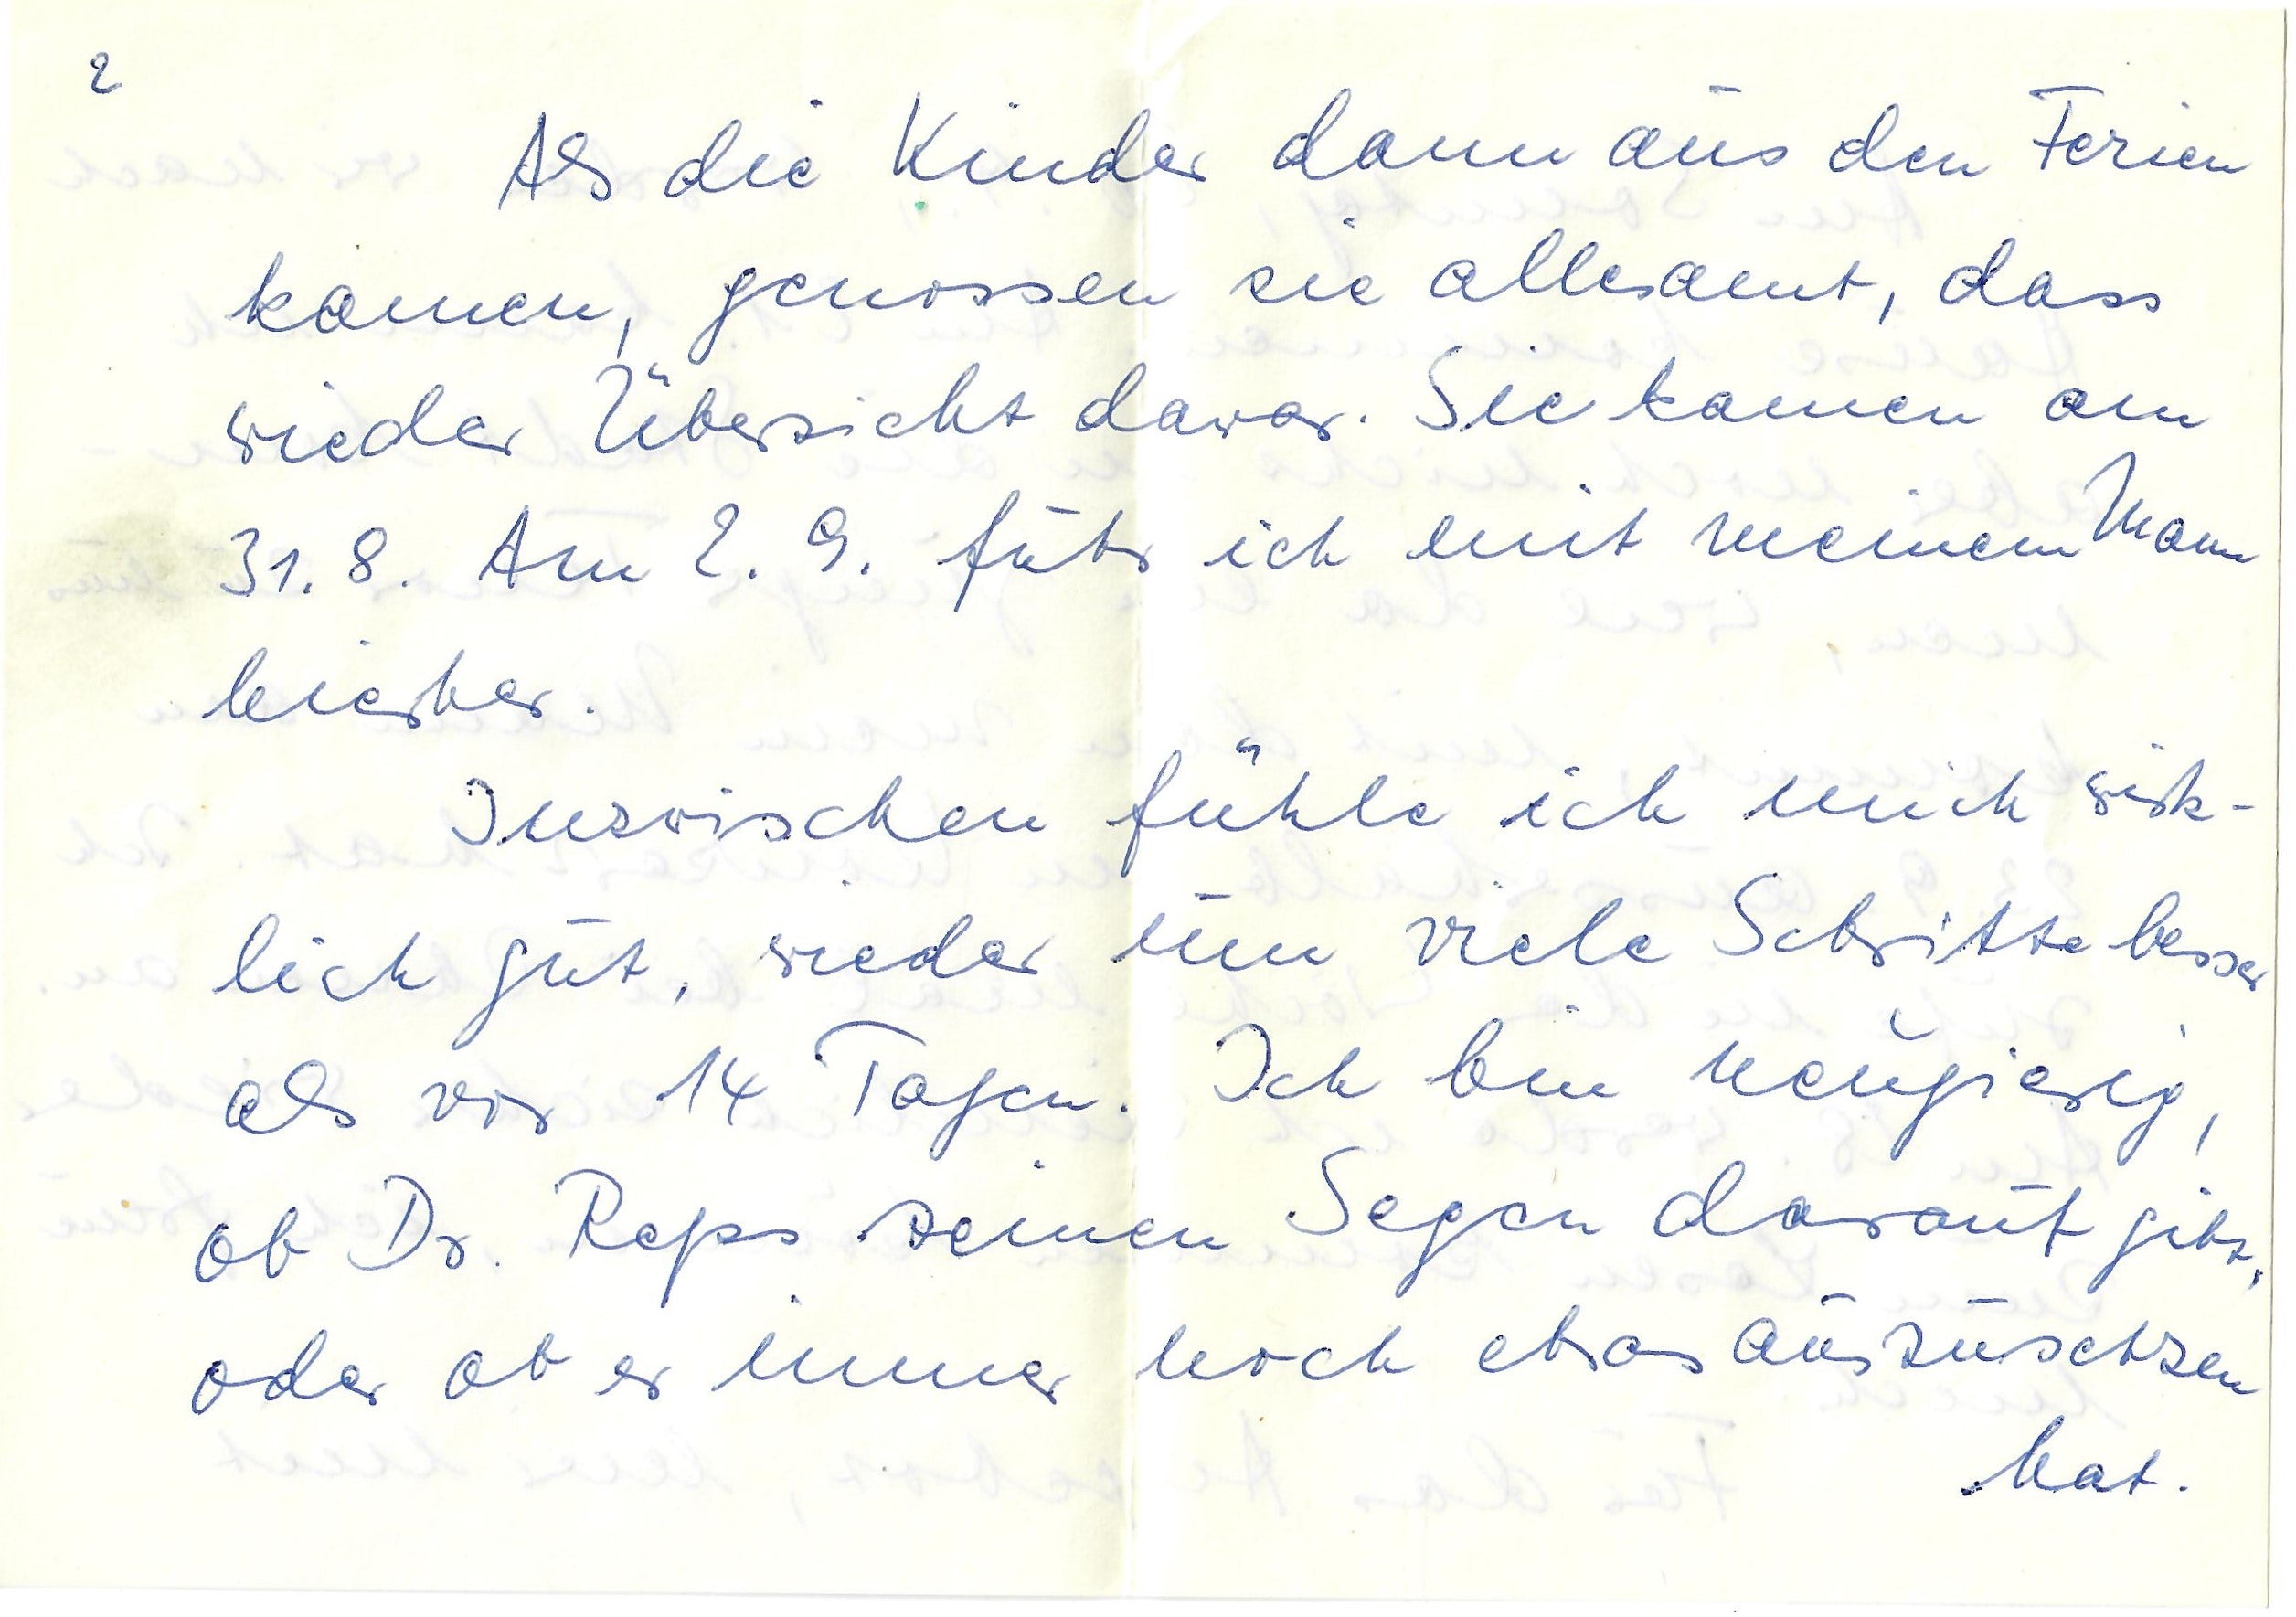 2
Als die Kinder dann aus den Ferien
kamen, genossen sie allesamt, dass
wieder Übersicht da war. Sie kamen am
31. 8. Am 2. 9. fuhr ich mit meinem Mann
hierher.
Inzwischen fühle ich mich wirk-
lich gut, wieder um viele Schritte besser
als vor 14 Tagen. Ich bin neugierig,
ob Dr. Reps seinen Segen darauf gibt,
oder ob er immer noch etwas auszusetzen
hat.